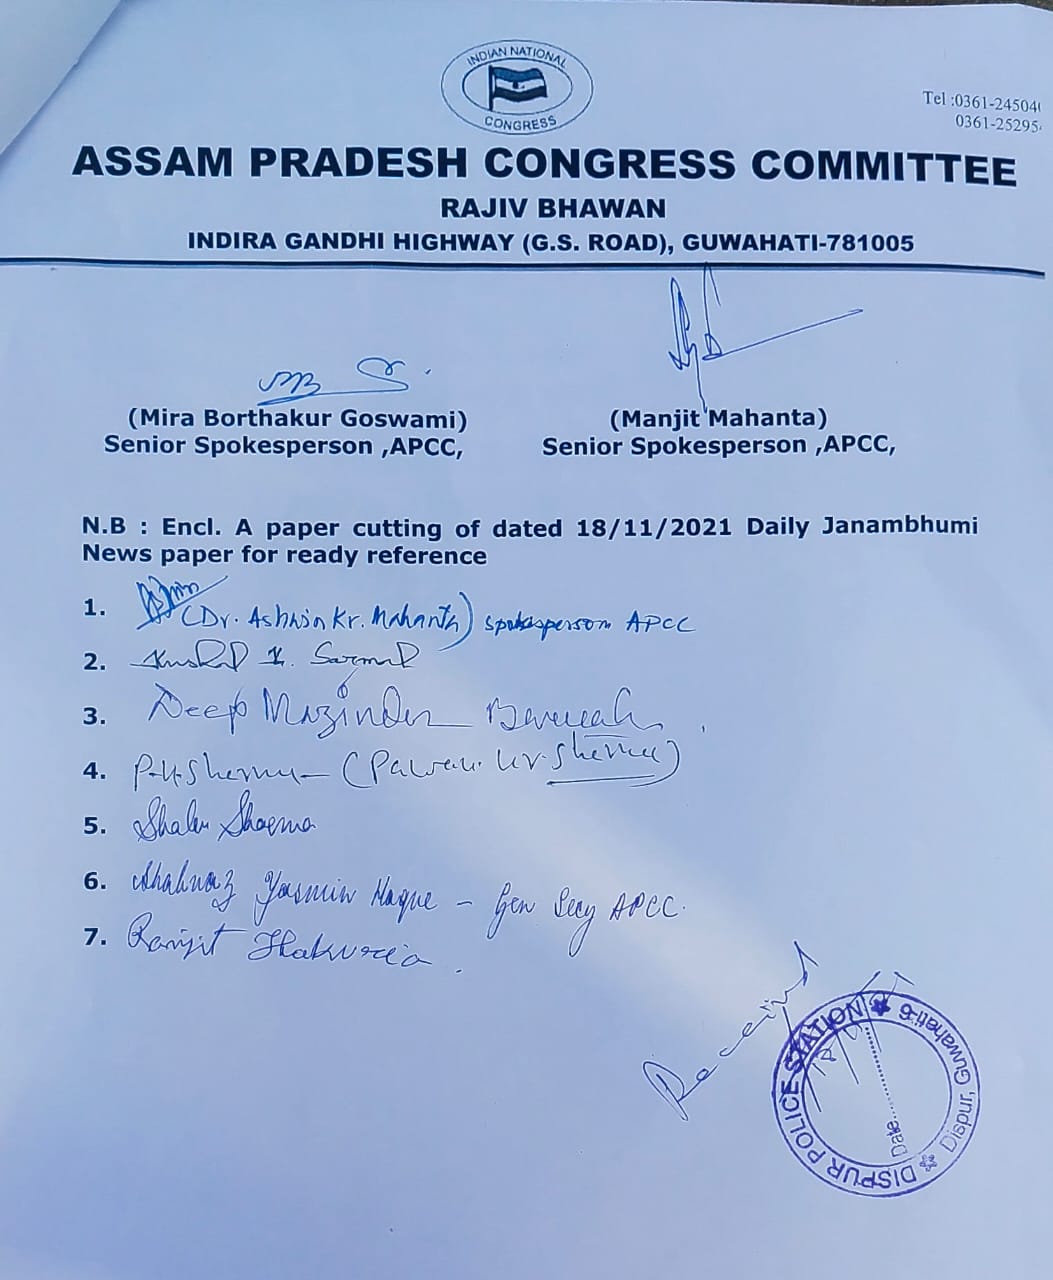 INDIAN NATIONAL
CONGRESS
Tel :0361-24504
0361-25295
ASSAM PRADESH CONGRESS COMMITTEE
RAJIV BHAWAN
INDIRA GANDHI HIGHWAY (G.S. ROAD), GUWAHATI-781005
(Mira Borthakur Goswami) (Manjit Mahanta)
Senior Spokesperson ,APCC, Senior Spokesperson ,APCC,
N.B : Encl. A paper cutting of dated 18/11/2021 Daily Janambhumi
News paper for ready reference
1. (Dr. Ashwin Kr. Mahanta) spokesperson APCC
2. K. Sarma
3. Deep Baruah
4. P.K. Sharma (Pawan Kr. Sharma)
5. Sharma
6. Shahnaz Yasmin Haque - Gen Secy APCC.
7. Ranjit Thakuria.
Received
DISPUR POLICE STATION
Dispur, Guwahati-6
Date